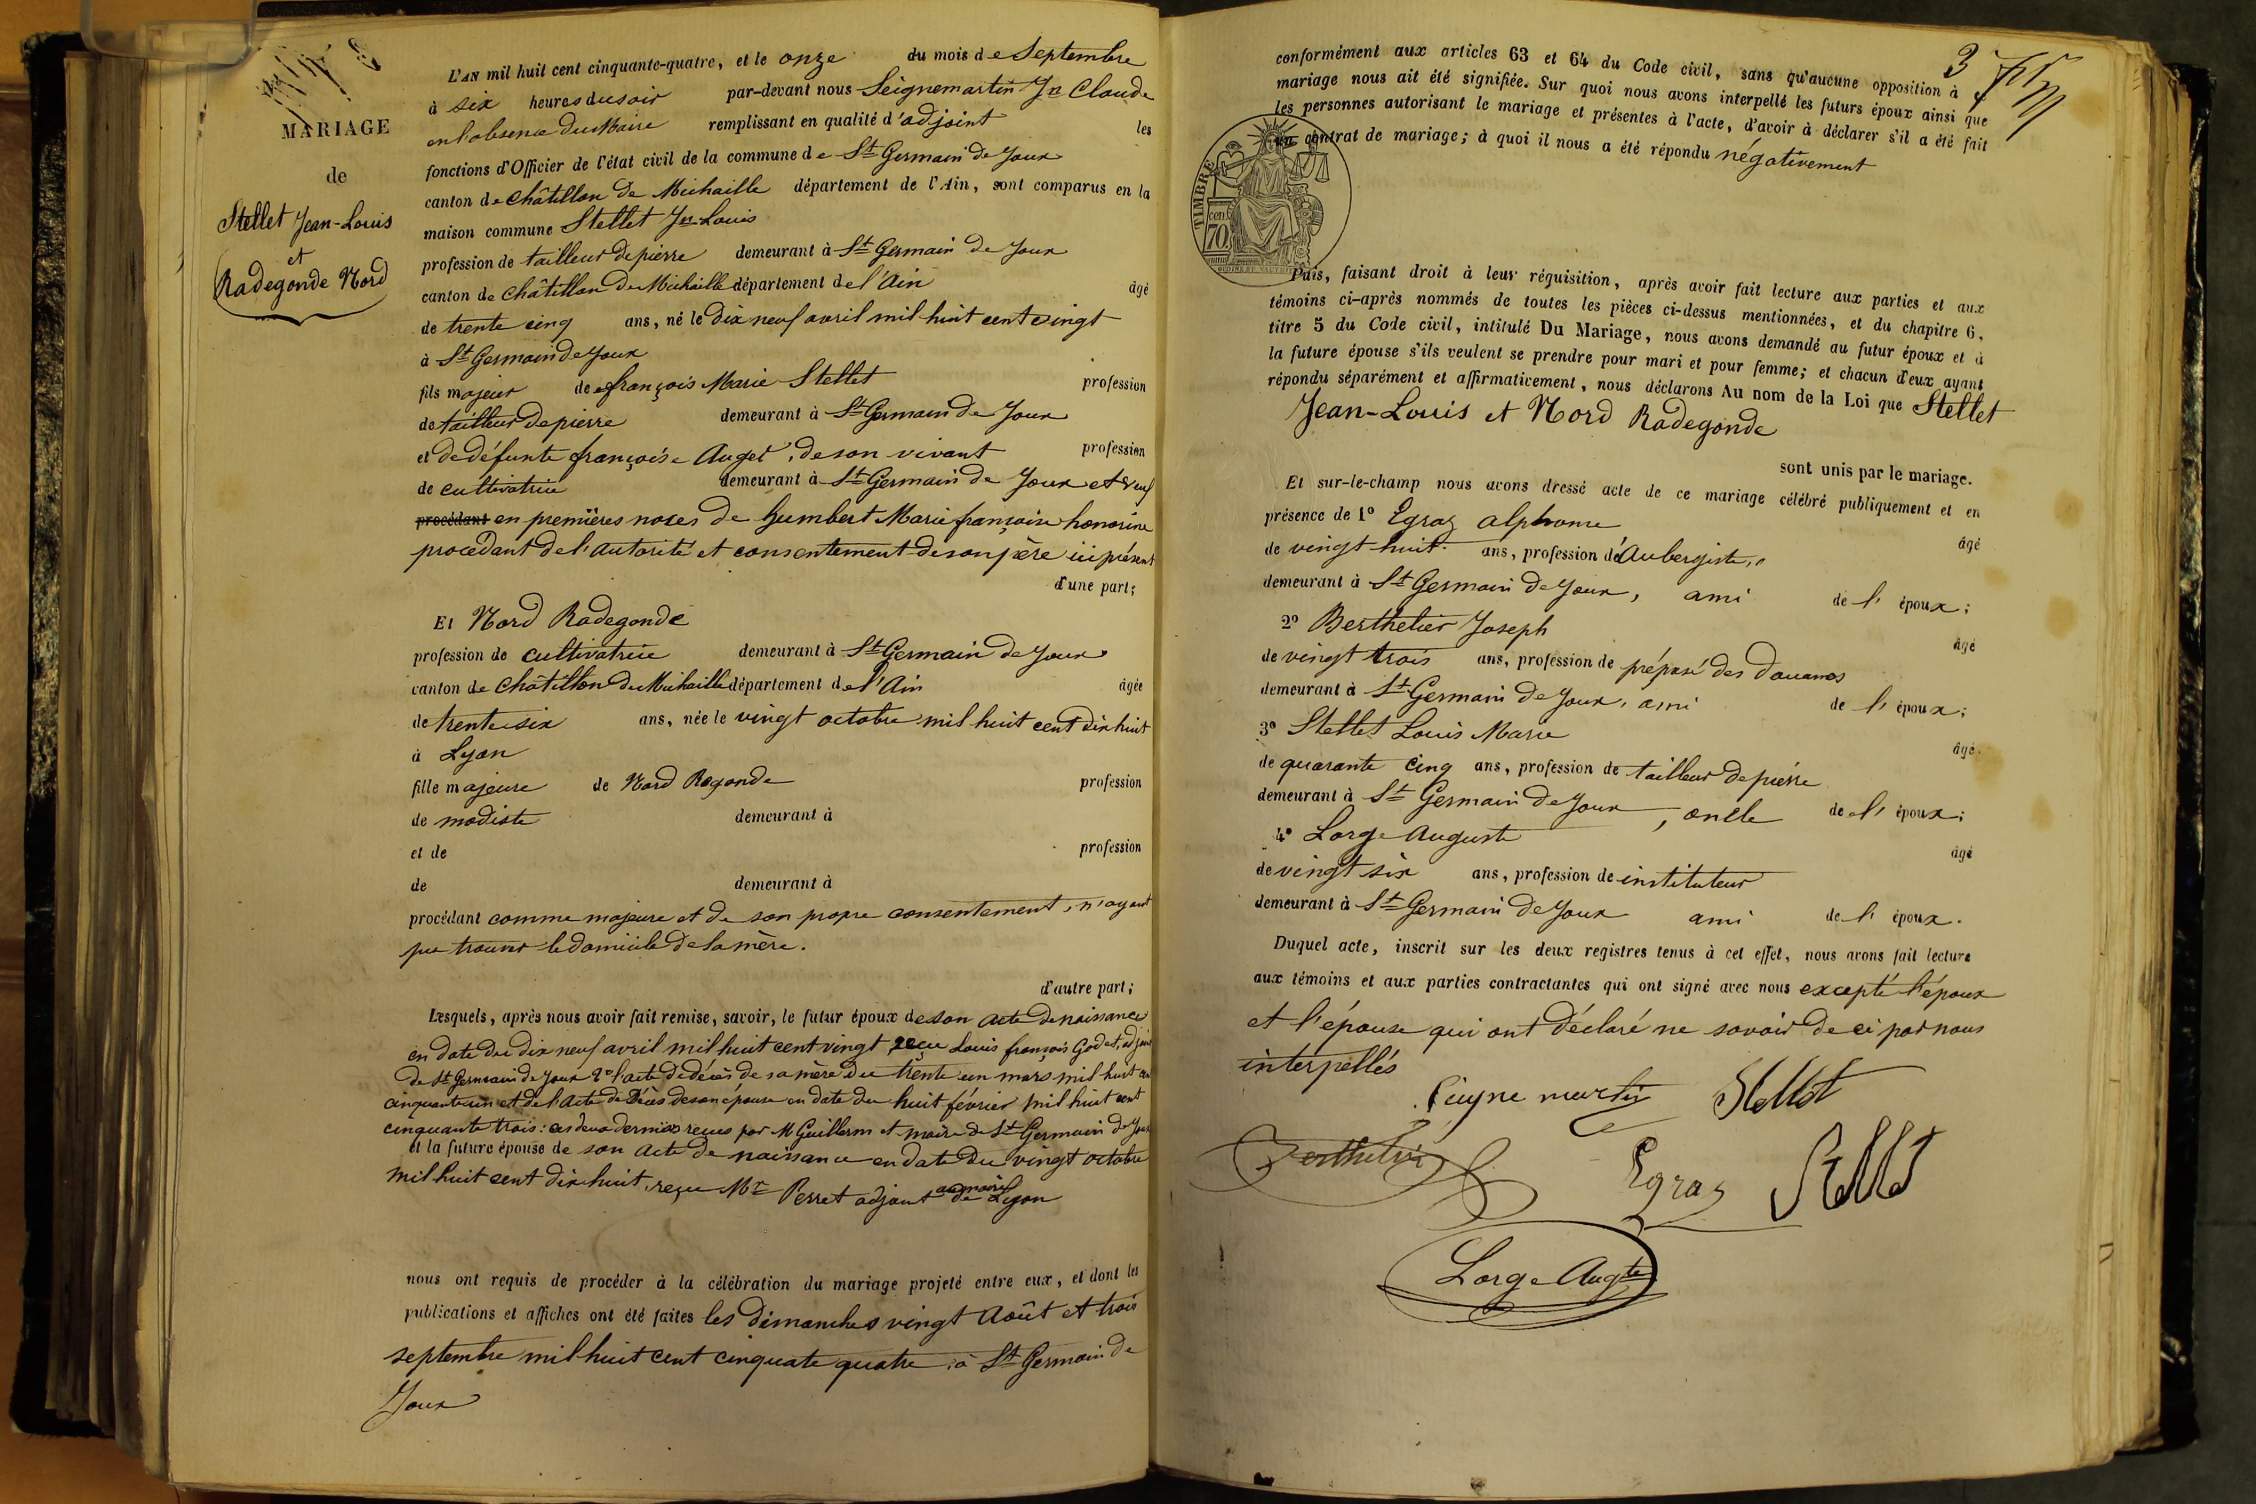 MARIAGE
de
Stellet Jean-Louis
et
Radegonde Nord
L'AN mil huit cent cinquante-quatre, et le onze du mois de Septembre
à six heures du soir par-devant nous Seignemartin Jn Claude
en l'absence du Maire remplissant en qualité d'adjoint les
fonctions d'Officier de l'état civil de la commune de St Germain de Joux
canton de Châtillon de Michaille département de l'Ain, sont comparus en la
maison commune Stellet Jn Louis
profession de tailleur de pierre demeurant à St Germain de Joux
canton de Châtillon de Michaille département de l'Ain âgé
de trente cinq ans, né le dix neuf avril mil huit cent vingt
à St Germain de Joux
fils majeur de françois Marie Stellet profession
de tailleur de pierre demeurant à St Germain de Joux
et de défunte françoise Auget, de son vivant profession
de cultivatrice demeurant à St Germain de Joux et veuf
procédant en premières noces de Humbert Marie françoise honorine
procédant de l'autorité et consentement de son père ici présent
d'une part;
Et Nord Radegonde
profession de cultivatrice demeurant à St Germain de Joux
canton de Châtillon de Michaille département de l'Ain âgée
de trente six ans, née le vingt octobre mil huit cent dix huit
à Lyon
fille majeure de Nord Rogonde profession
de modiste demeurant à
et de profession
de demeurant à
procédant comme majeure et de son propre consentement, n'ayant
pu trouver le domicile de la mère.
d'autre part;
Lesquels, après nous avoir fait remise, savoir, le futur époux de son acte de naissance
en date du dix neuf avril mil huit cent vingt reçu Louis françois Godet, adjoint
de St Germain de Joux 2° l'acte de décès de sa mère du trente un mars mil huit cent
cinquante un et de l'acte de décès de son épouse en date du huit février mil huit cent
cinquante trois: ces deux derniers reçus par M Guillerm et maire de St Germain de Joux
et la future épouse de son acte de naissance en date du vingt octobre
mil huit cent dix huit, reçu Mr Perret adjoint au maire de Lyon
nous ont requis de procéder à la célébration du mariage projeté entre eux, et dont les
publications et affiches ont été faites les dimanches vingt Août et trois
septembre mil huit cent cinquate quatre, à St Germain de
Joux
3
conformément aux articles 63 et 64 du Code civil, sans qu'aucune opposition à ce
mariage nous ait été signifiée. Sur quoi nous avons interpellé les futurs époux ainsi que
les personnes autorisant le mariage et présentes à l'acte, d'avoir à déclarer s'il a été fait
un contrat de mariage; à quoi il nous a été répondu négativement
TIMBRE
cen.
70
Puis, faisant droit à leur réquisition, après avoir fait lecture aux parties et aux
témoins ci-après nommés de toutes les pièces ci-dessus mentionnées, et du chapitre 6,
titre 5 du Code civil, intitulé Du Mariage, nous avons demandé au futur époux et à
la future épouse s'ils veulent se prendre pour mari et pour femme; et chacun d'eux ayant
répondu séparément et affirmativement, nous déclarons Au nom de la Loi que Stellet
Jean-Louis et Nord Radegonde
sont unis par le mariage.
Et sur-le-champ nous avons dressé acte de ce mariage célébré publiquement et en
présence de 1° Egraz alphonse
âgé
de vingt huit ans, profession d'Aubergiste,
demeurant à St Germain de Joux, ami de l'époux;
2° Berthelier Joseph
âgé
de vingt trois ans, profession de préposé des douanes
demeurant à St Germain de Joux, ami de l'époux;
3° Stellet Louis Marie
âgé
de quarante cinq ans, profession de tailleur de pierre
demeurant à St Germain de Joux, oncle de l'époux;
4° Lorge Auguste
âgé
de vingt six ans, profession de instituteur
demeurant à St Germain de Joux ami de l'époux.
Duquel acte, inscrit sur les deux registres tenus à cet effet, nous avons fait lecture
aux témoins et aux parties contractantes qui ont signé avec nous excepté l'époux
et l'épouse qui ont déclaré ne savoir de ci par nous
interpellés
Seigne martin Stellet
Berthelier Egraz Stellet
Lorge Augte